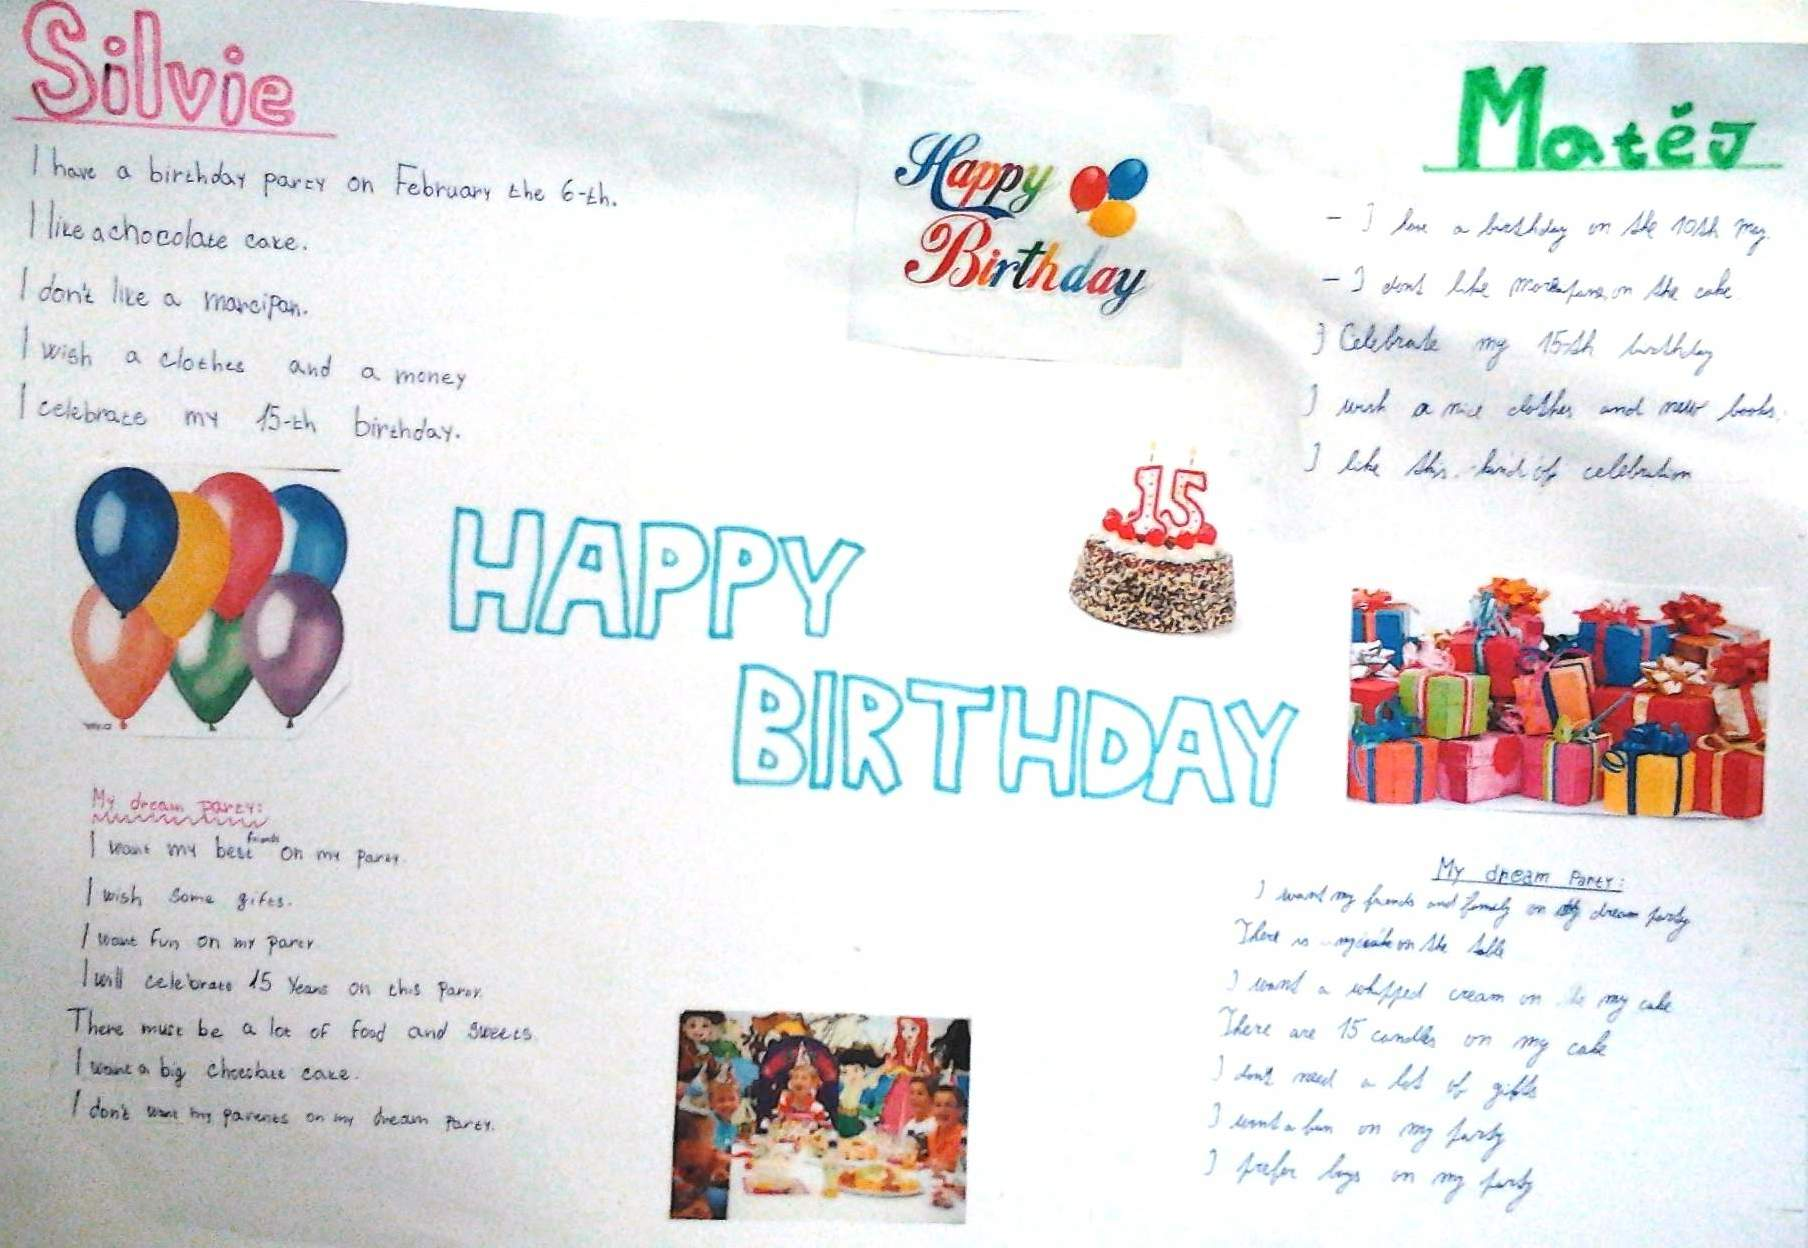 Silvie
I have a birthday party on February the 6-th.
I like a chocolate cake.
I don't like a marcipan.
I wish a clothes and a money
I celebrate my 15-th birthday.
Happy
Birthday
Matěj
- I have a birthday on the 10th may.
- I dont like on the cake
I Celebrate my 15-th birthday
I wish a nice clothes and new books.
I like this kind of celebration
HAPPY
BIRTHDAY
15
My dream party:
I want my best friends on my party.
I wish some gifts.
I want fun on my party
I will celebrate 15 Years on this Party.
There must be a lot of food and sweets.
I want a big chocolate cake.
I don't want my parents on my dream Party.
My dream Party:
I want my friends and family on my dream party
There is on the table
I want a whipped cream on my cake
There are 15 candles on my cake
I don't need a lot of gifts
I want a fun on my party
I prefer boys on my party